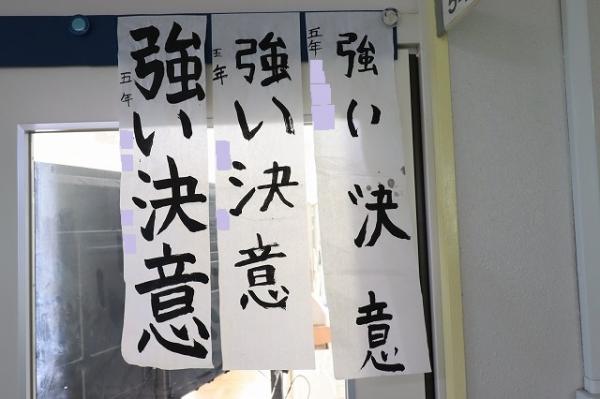 強い決意
五年
強い決意
五年
強い決意
五年